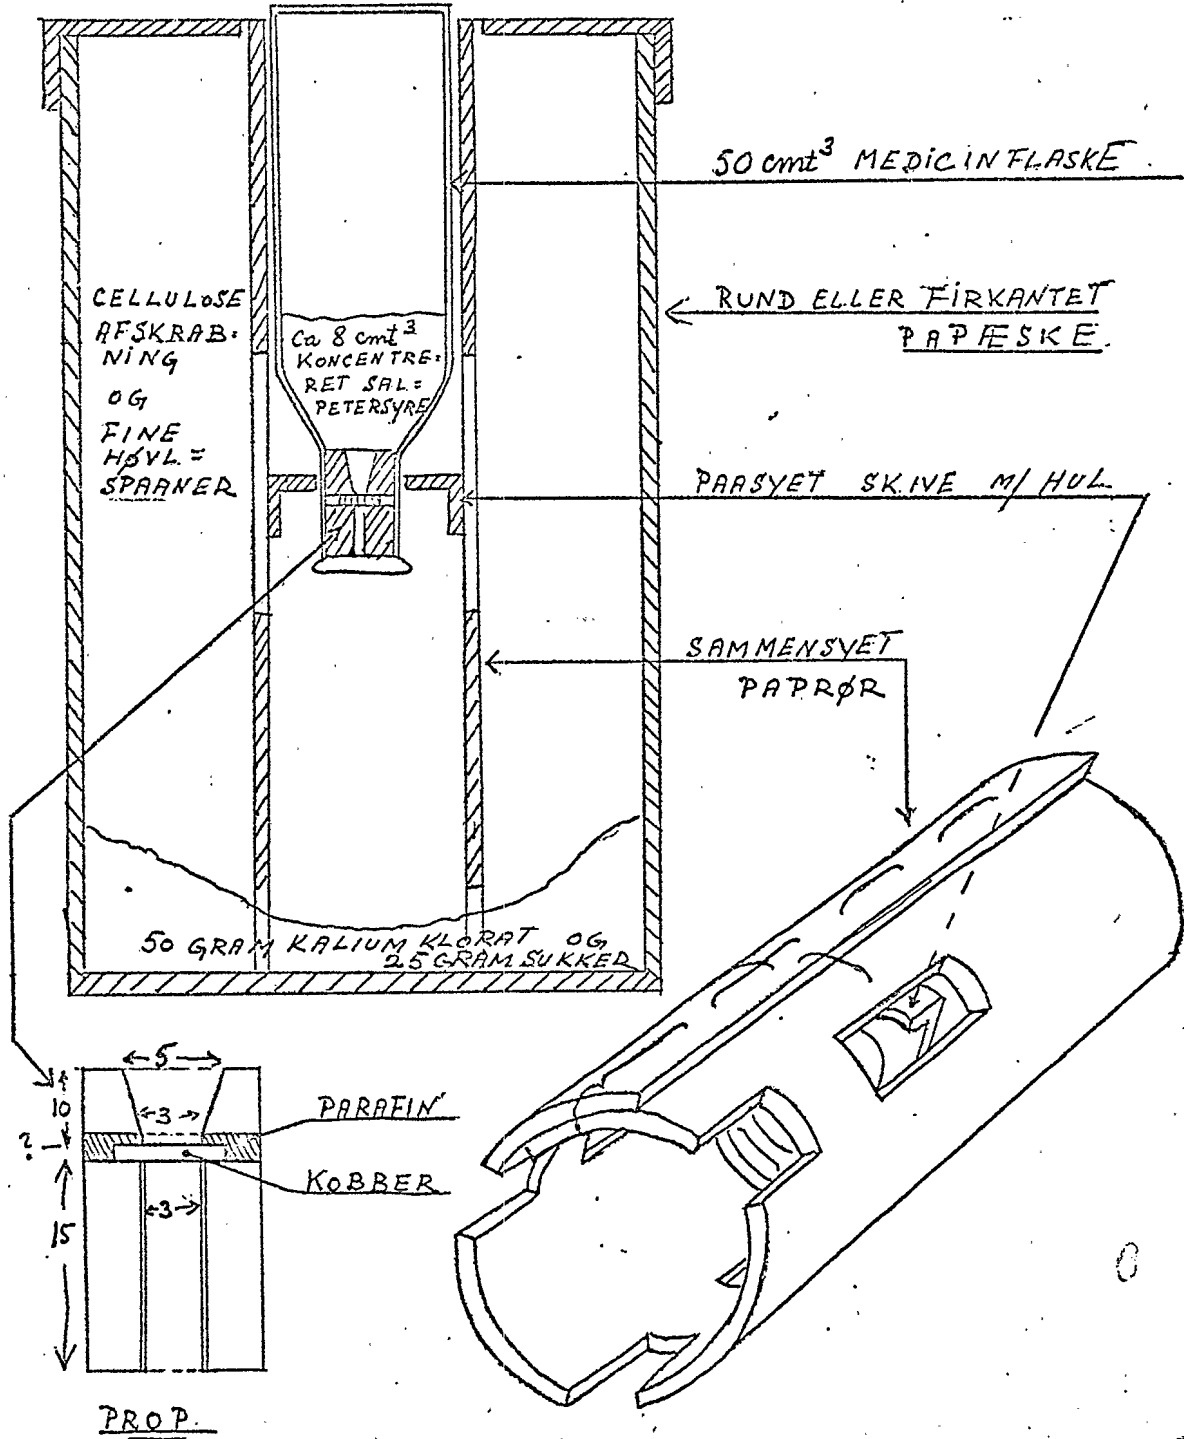 50 cmt³ MEDICINFLASKE
RUND ELLER FIRKANTET
PAPÆSKE.
CELLULOSE
AFSKRAB=
NING
OG
FINE
HØVL=
SPAANER
Ca 8 cmt³
KONCENTRE=
RET SAL=
PETERSYRE
PAASYET SKIVE M/ HUL
SAMMENSYET
PAPRØR
50 GRAM KALIUM KLORAT OG
25 GRAM SUKKER
5
10
3
?
PARAFIN
KOBBER
3
15
PROP.